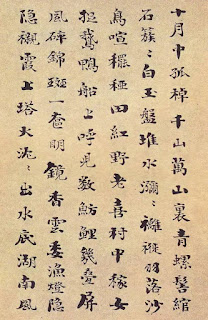 十月中孤棹千山萬山裏青螺髻綰
石簇〻白玉盤堆水瀰〻襳褷羽落沙
鳥喧穤稏田紅野老喜村中稼女
鵞鴨船上呼兒數魴鯉幾疊屏
風碎錦斑一奩明鏡香雲委漁燈隱
隱襯霞上塔火〻出水底湖南風